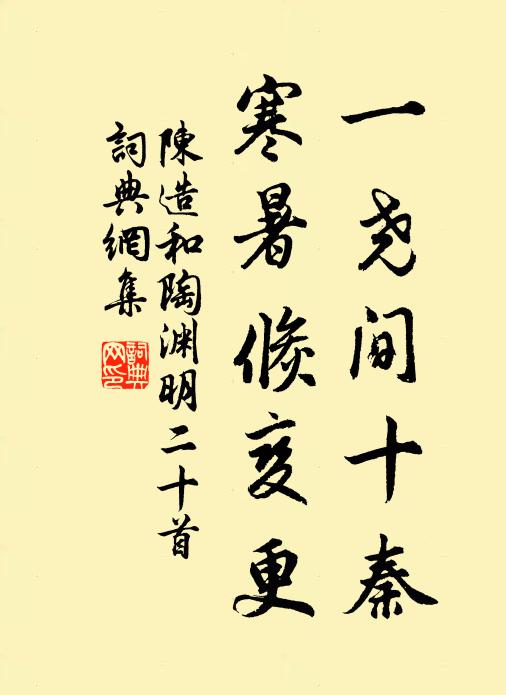 一尧间十秦
寒暑倏变更
陳造和陶淵明二十首
詞典網集
詞典
网印